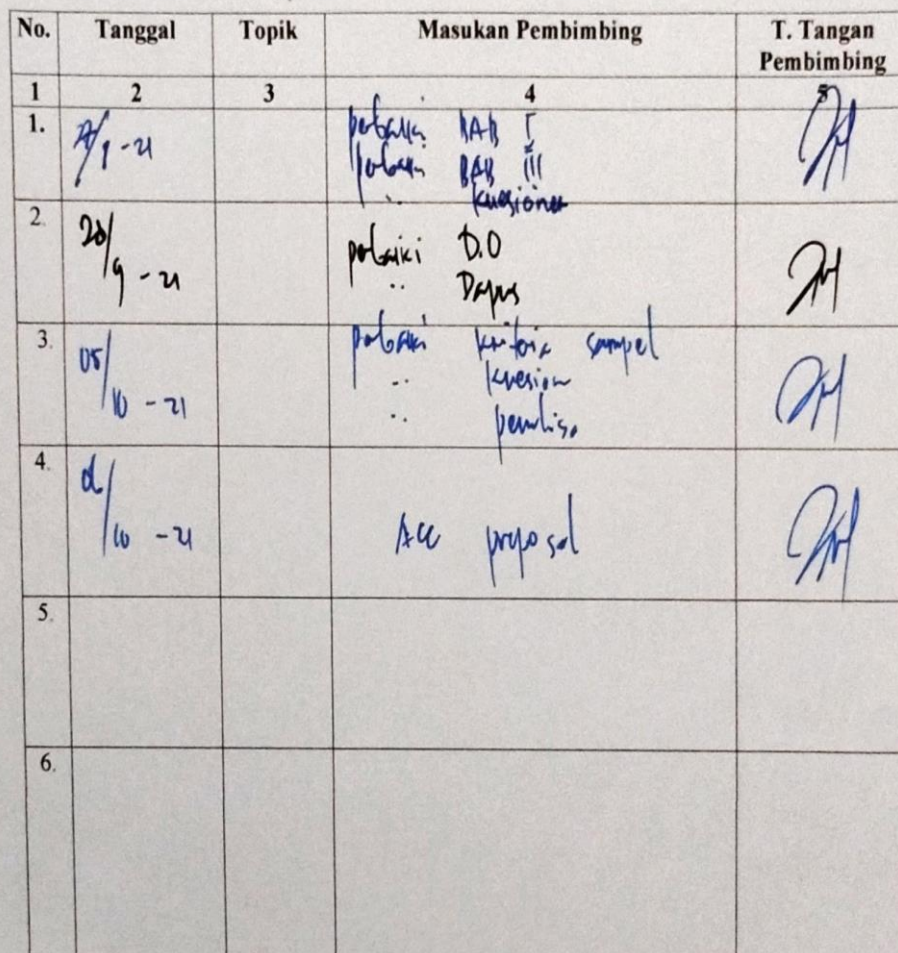 No. Tanggal Topik Masukan Pembimbing T. Tangan Pembimbing
1 2 3 4 5
1. /9 -21 perbaiki BAB I
perbaiki BAB III
" kuesioner
2. 20/9 -21 perbaiki D.O
" Dapus
3. 05/10 -21 perbaiki kriteria sampel
" kuesion
" penulisa
4. /10 -21 Acc proposal
5.
6.